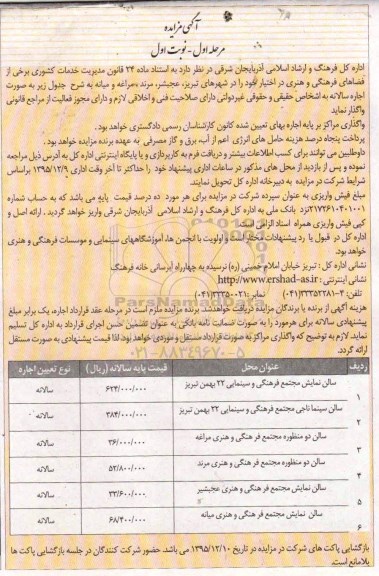 آگهی مزایده
مرحله اول - نوبت اول
اداره کل فرهنگ و ارشاد اسلامی آذربایجان شرقی در نظر دارد به استناد ماده ۲۴ قانون مدیریت خدمات کشوری برخی از
فضاهای فرهنگی و هنری در اختیار خود را در شهرهای تبریز، عجبشیر، مرند، مراغه و میانه به شرح جدول زیر به صورت
اجاره سالانه به اشخاص حقیقی و حقوقی غیردولتی دارای صلاحیت فنی و اخلاقی لازم و دارای مجوز فعالیت از مراجع قانونی
واگذار نماید
واگذاری مراکز بر پایه اجاره بهای تعیین شده کانون کارشناسان رسمی دادگستری خواهد بود.
پرداخت پنجاه درصد هزینه حامل های انرژی اعم از آب، برق و گاز مصرفی به عهده برنده مزایده خواهد بود.
داوطلبین می توانند برای کسب اطلاعات بیشتر و دریافت فرم به کارپردازی و یا پایگاه اینترنتی اداره کل به آدرس ذیل مراجعه
نموده و پس از بازدید از محل های مذکور در ساعات اداری پیشنهاد خود را حداکثر تا آخر وقت اداری ۱۳۹۵/۱۲/۹ براساس
شرایط شرکت در مزایده به دبیرخانه اداره کل تحویل نمایند.
مبلغ فیش واریزی به عنوان سپرده شرکت در مزایده برای هر مورد ده درصد قیمت پایه می باشد که به حساب شماره
۲۱۷۲۶۱۰۴۰۱۰۰۱ نزد بانک ملی به نام اداره کل فرهنگ و ارشاد اسلامی آذربایجان شرقی واریز خواهد گردید. ارائه اصل و
کپی فیش واریزی همراه اسناد الزامی است.
اداره کل در قبول یا رد پیشنهادات مختار است و اولویت با انجمن ها، آموزشگاههای سینمایی و موسسات فرهنگی و هنری
خواهد بود.
نشانی اداره کل: تبریز خیابان امام خمینی (ره) نرسیده به چهارراه آبرسانی خانه فرهنگ
نشانی اینترنتی: http://www.ershad-as.ir
تلفن: ۴-۳۳۳۵۲۲۸۱(۰۴۱) نمابر: ۳۳۳۵۰۰۲۱(۰۴۱)
هزینه آگهی از برنده یا برندگان مزایده دریافت خواهد شد. برنده مزایده ملزم است در مرحله عقد قرارداد اجاره، یک برابر مبلغ
پیشنهادی سالانه برای هر مورد را به صورت ضمانت نامه بانکی به عنوان تضمین حسن اجرای قرارداد به اداره کل تسلیم
نماید. لازم به توضیح که واگذاری مراکز به صورت قرارداد مستقل و موردی خواهد بود، لذا قیمت پیشنهادی به صورت مستقل
ارائه گردد.
ردیف عنوان محل قیمت پایه سالانه (ریال) نوع تعیین اجاره
۱ سالن نمایش مجتمع فرهنگی و سینمایی ۲۲ بهمن تبریز ۶۲۴/۰۰۰/۰۰۰ سالانه
۲ سالن سینما ناجی مجتمع فرهنگی و سینمایی ۲۲ بهمن تبریز ۳۸۴/۰۰۰/۰۰۰ سالانه
۳ سالن دو منظوره مجتمع فرهنگی و هنری مراغه ۳۶/۰۰۰/۰۰۰ سالانه
۴ سالن دو منظوره مجتمع فرهنگی و هنری مرند ۵۲/۸۰۰/۰۰۰ سالانه
۵ سالن نمایش مجتمع فرهنگی و هنری عجبشیر ۳۳/۶۰۰/۰۰۰ سالانه
۶ سالن نمایش مجتمع فرهنگی و هنری میانه ۶۸/۴۰۰/۰۰۰ سالانه
بازگشایی پاکت های شرکت در مزایده در تاریخ ۱۳۹۵/۱۲/۱۰ می باشد حضور شرکت کنندگان در جلسه بازگشایی پاکت ها
بلامانع است.
ParsNamadData
۰۲۱-۸۸۳۴۹۶۷۰-۵